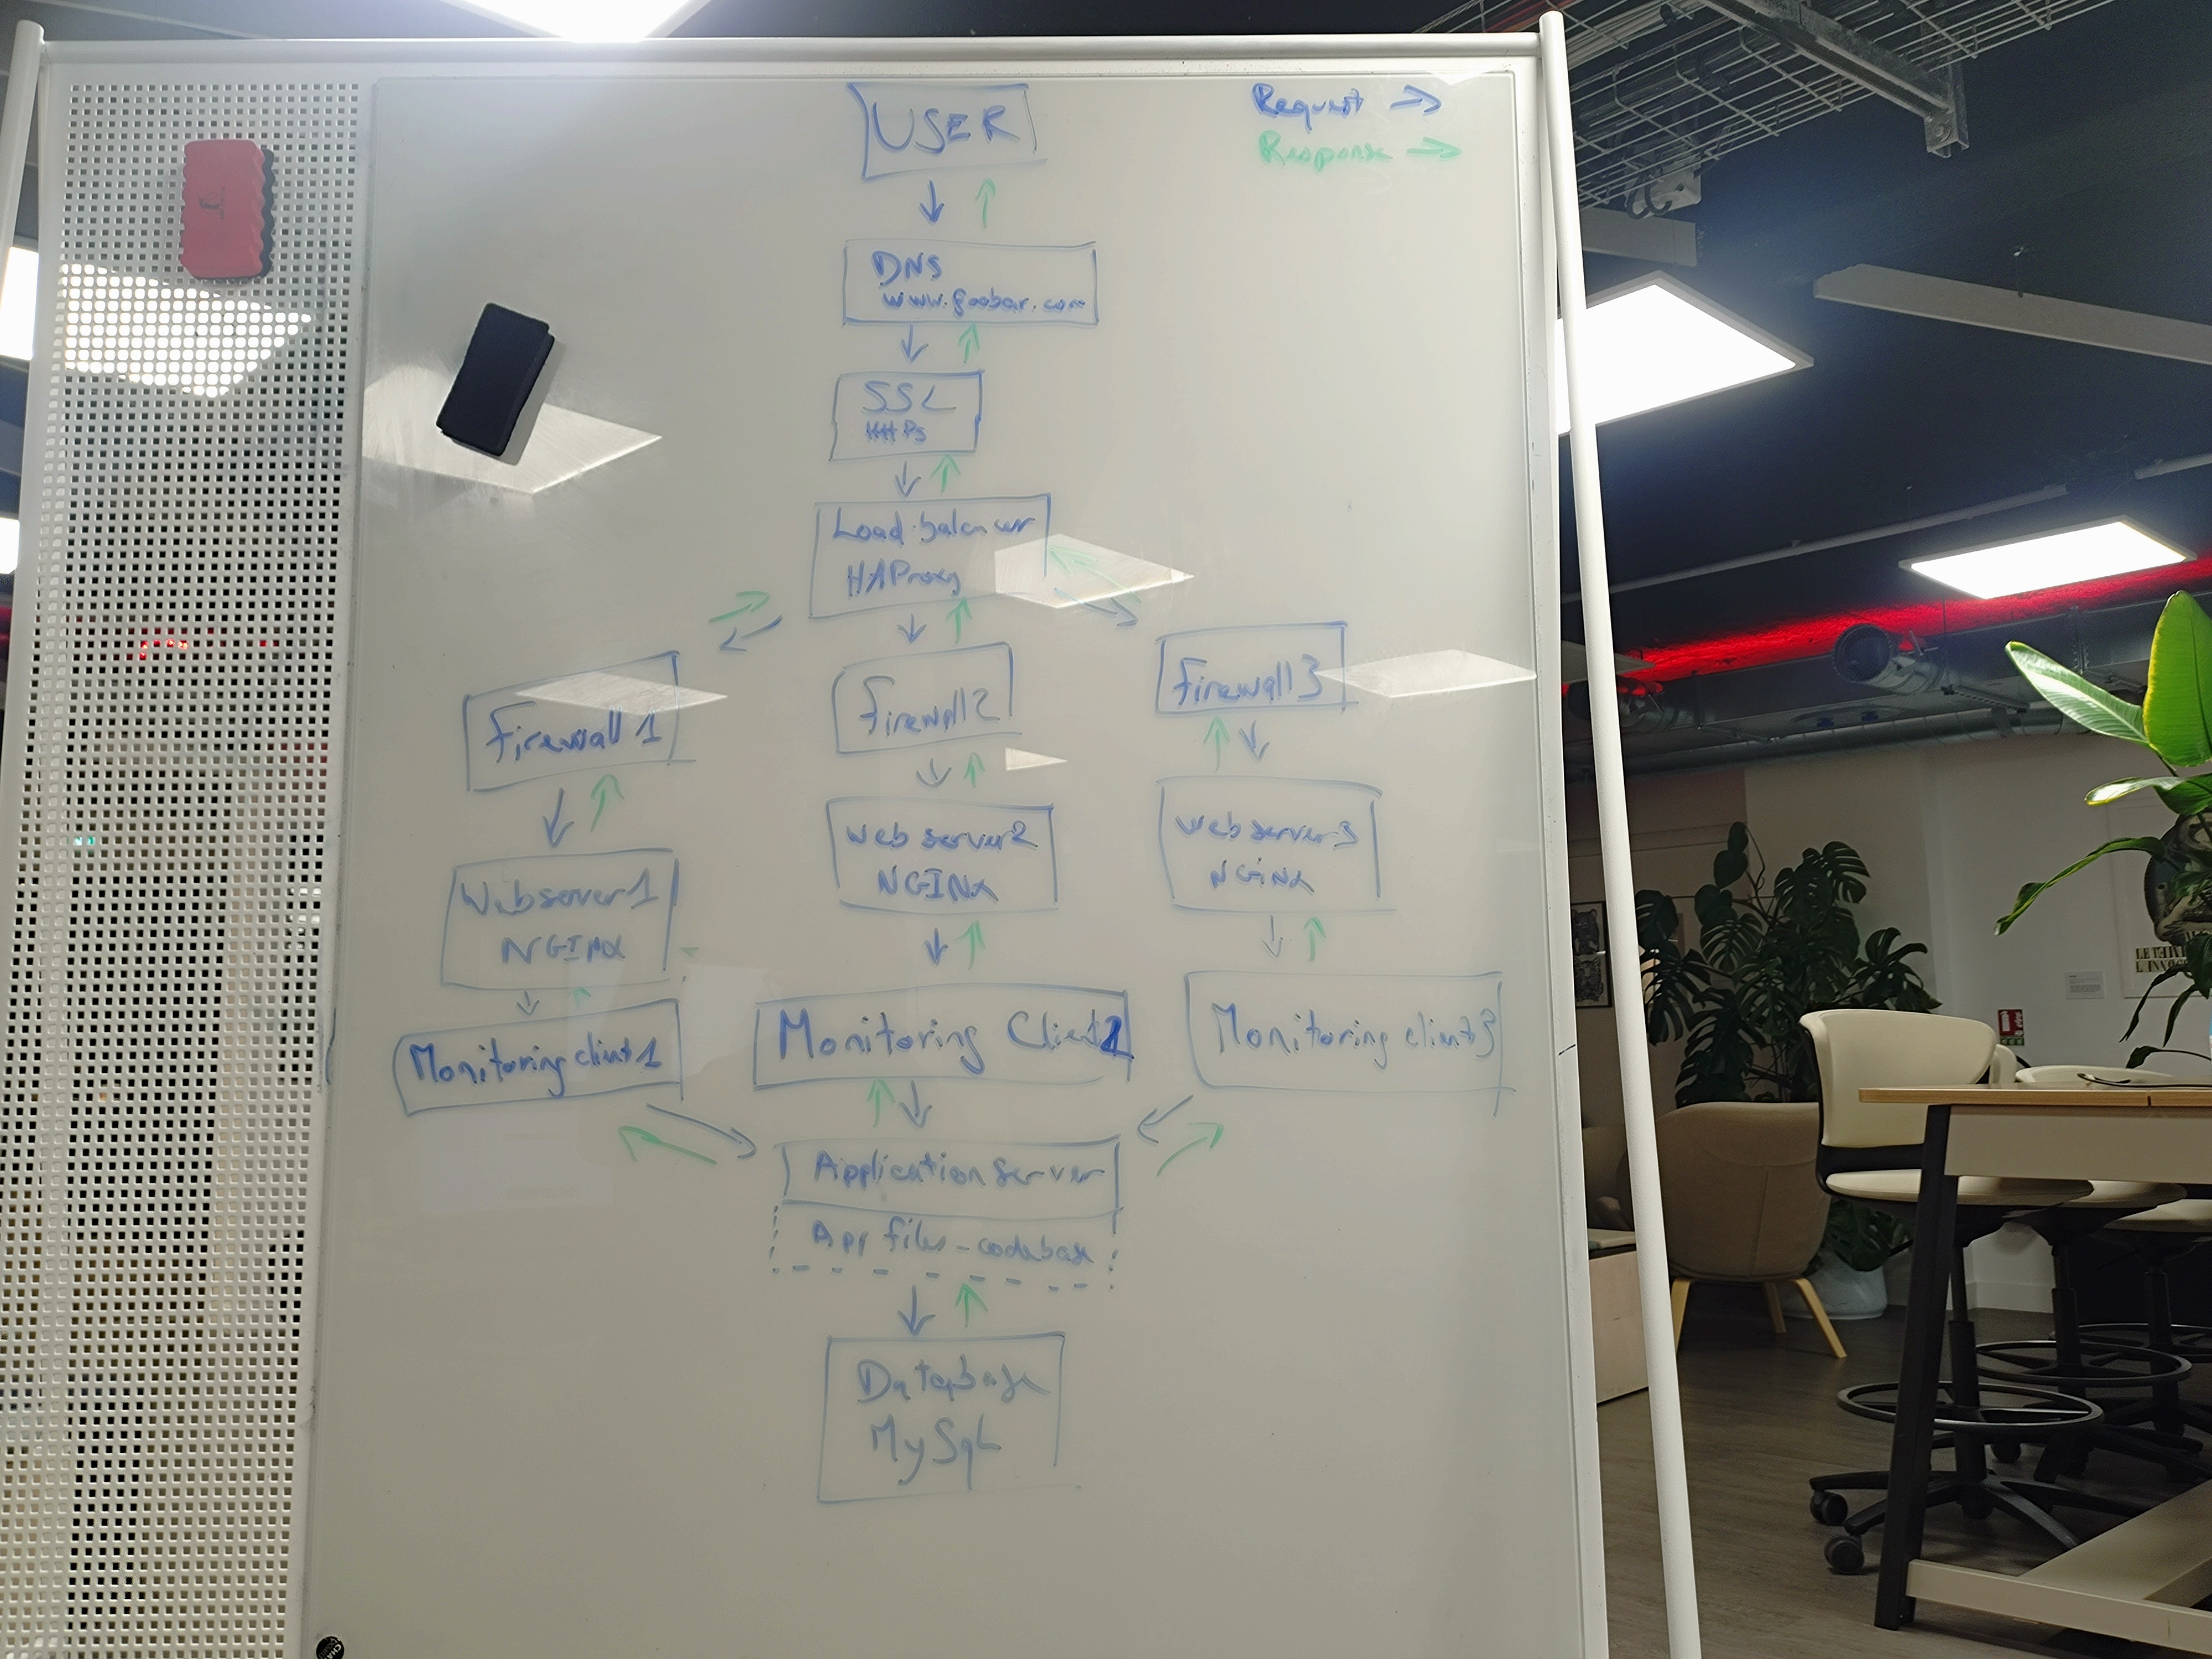 USER
Request →
Response →
DNS
www.foobar.com
SSL
HTTPs
Load-balancer
HAProxy
Firewall 1
Firewall 2
Firewall 3
Webserver 1
NGINX
Web server 2
NGINX
Web server 3
NGiNX
Monitoring client 1
Monitoring Client 2
Monitoring client 3
Application Server
App files - codebase
Database
MySqL